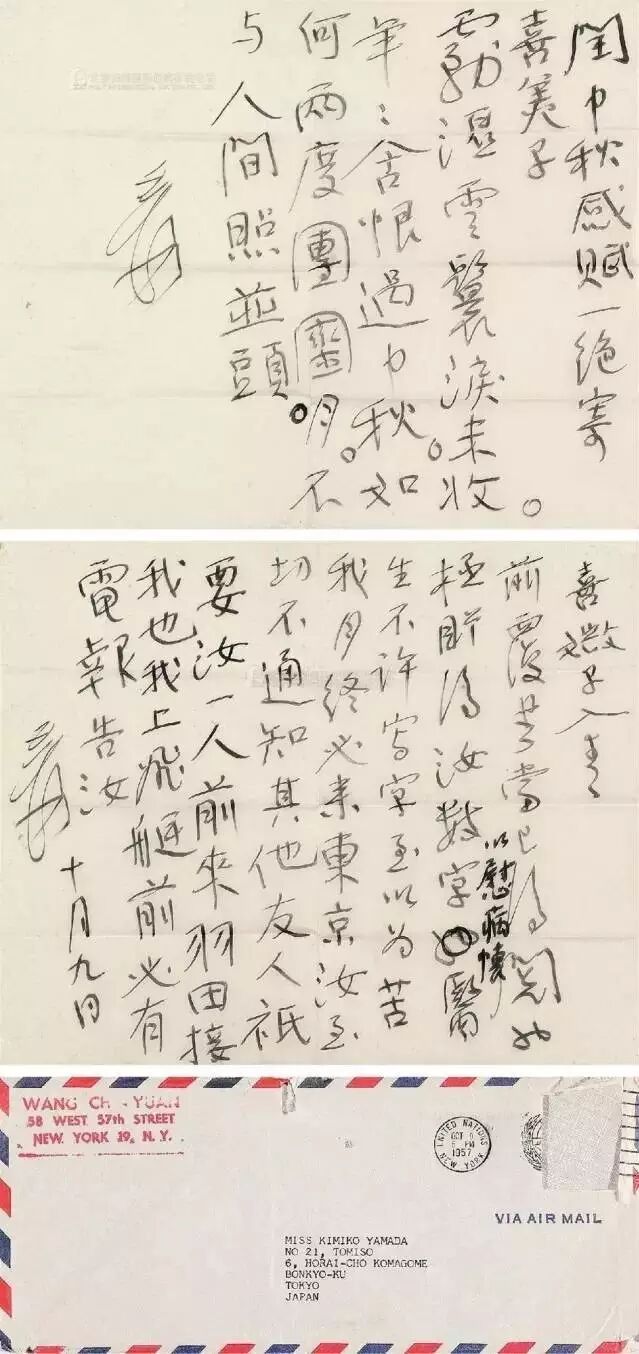 閏中秋感賦一絕寄
喜美子
霧濕雲鬟淚未收。
年〻含恨過中秋。如
何兩度團圞月。不
与人間照並頭。
爰
喜媺子入畫
前覆書當已得閱也
極盼得汝數字以慰病懷醫
生不許寫字至以為苦
我月終必來東京汝至
切不通知其他友人祇
要汝一人前來羽田接
我也我上飛艇前必有
電報告汝
爰
十月九日
WANG CH -YUAN
58 WEST 57th STREET
NEW YORK 19, N. Y.
UNITED NATIONS
OCT 9
PM
1957
NEW YORK
VIA AIR MAIL
MISS KIMIKO YAMADA
NO 21, TOMISO
6, HORAI-CHO KOMAGOME
BONKYO-KU
TOKYO
JAPAN